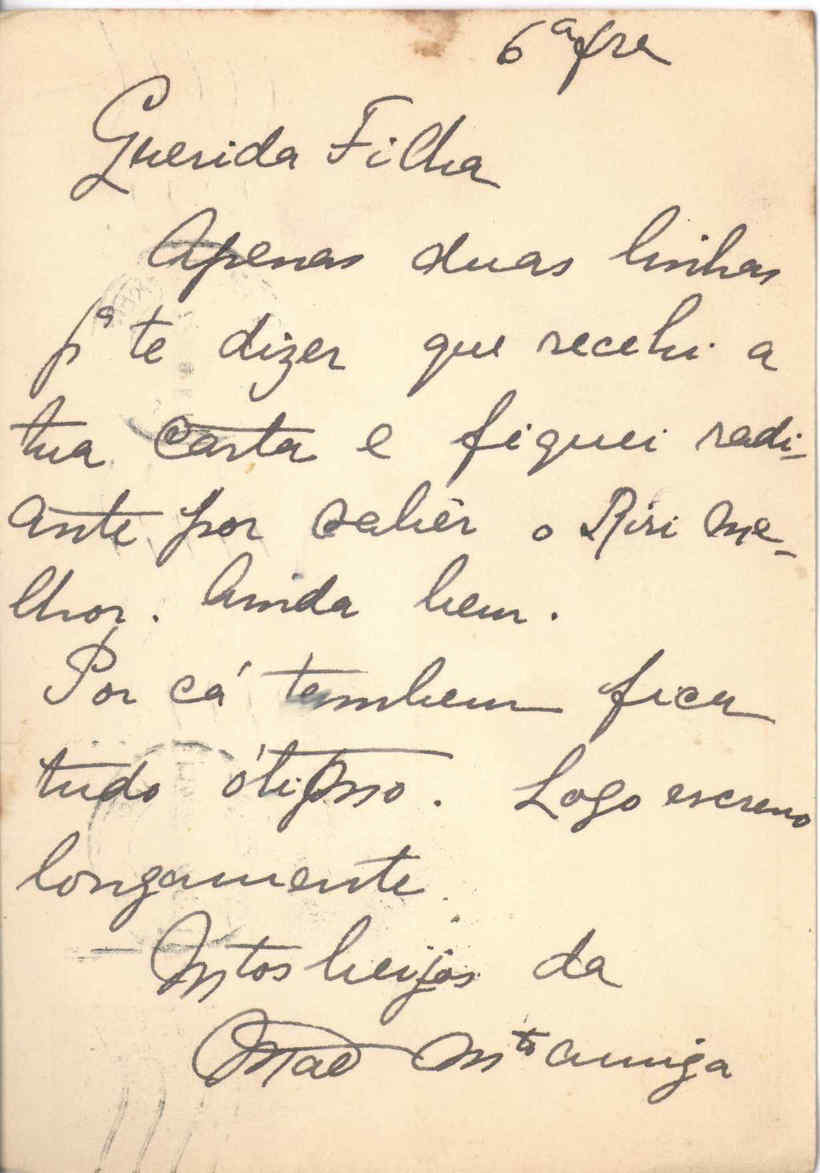 6ª fra
Querida Filha
Apenas duas linhas
pª te dizer que recebi a
tua carta e fiquei radi-
ante por sabêr o Riri me-
lhor. Ainda bem.
Por cá tambem fica
tudo ótimo. Logo escrevo
longamente.
Mtos beijos da
Mãe Mto amiga